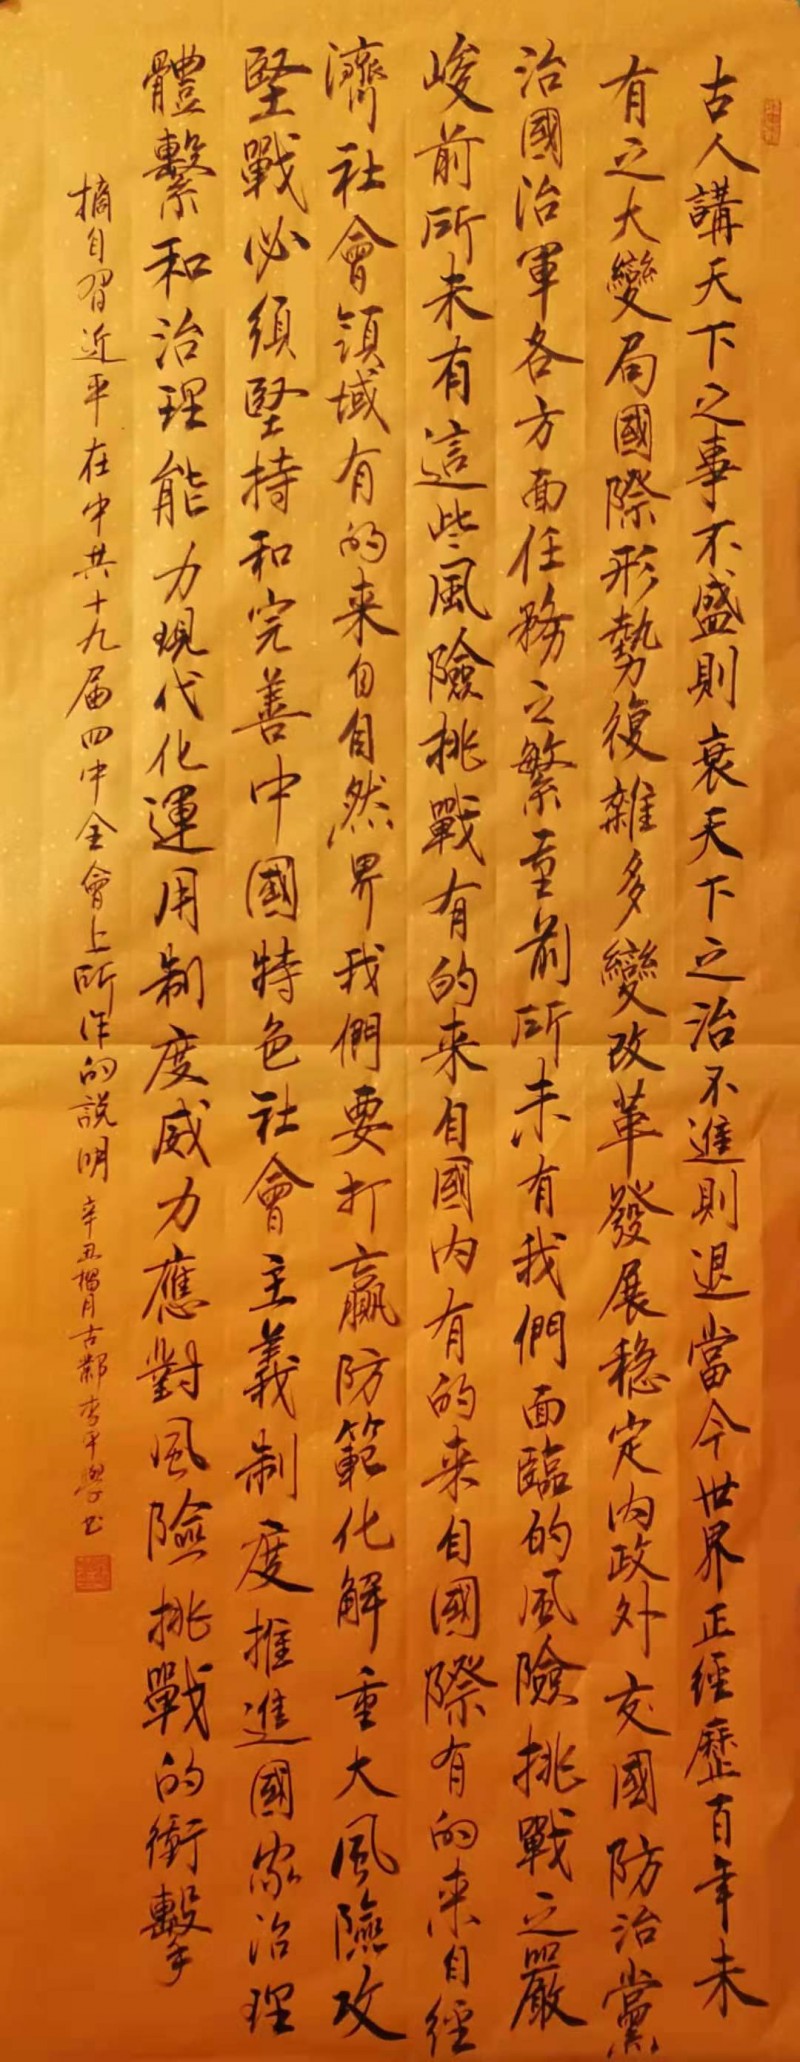 古人講天下之事不盛則衰天下之治不進則退當今世界正經歷百年未
有之大變局國際形勢復雜多變改革發展穩定內政外交國防治黨
治國治軍各方面任務之繁重前所未有我們面臨的風險挑戰之嚴
峻前所未有這些風險挑戰有的来自國内有的来自國際有的来自經
濟社會領域有的来自自然界我們要打贏防範化解重大風險攻
堅戰必須堅持和完善中國特色社會主義制度推進國家治理
體繫和治理能力現代化運用制度威力應對風險挑戰的衝擊
摘自習近平在中共十九届四中全會上所作的説明 辛丑榴月古鄴李千學书